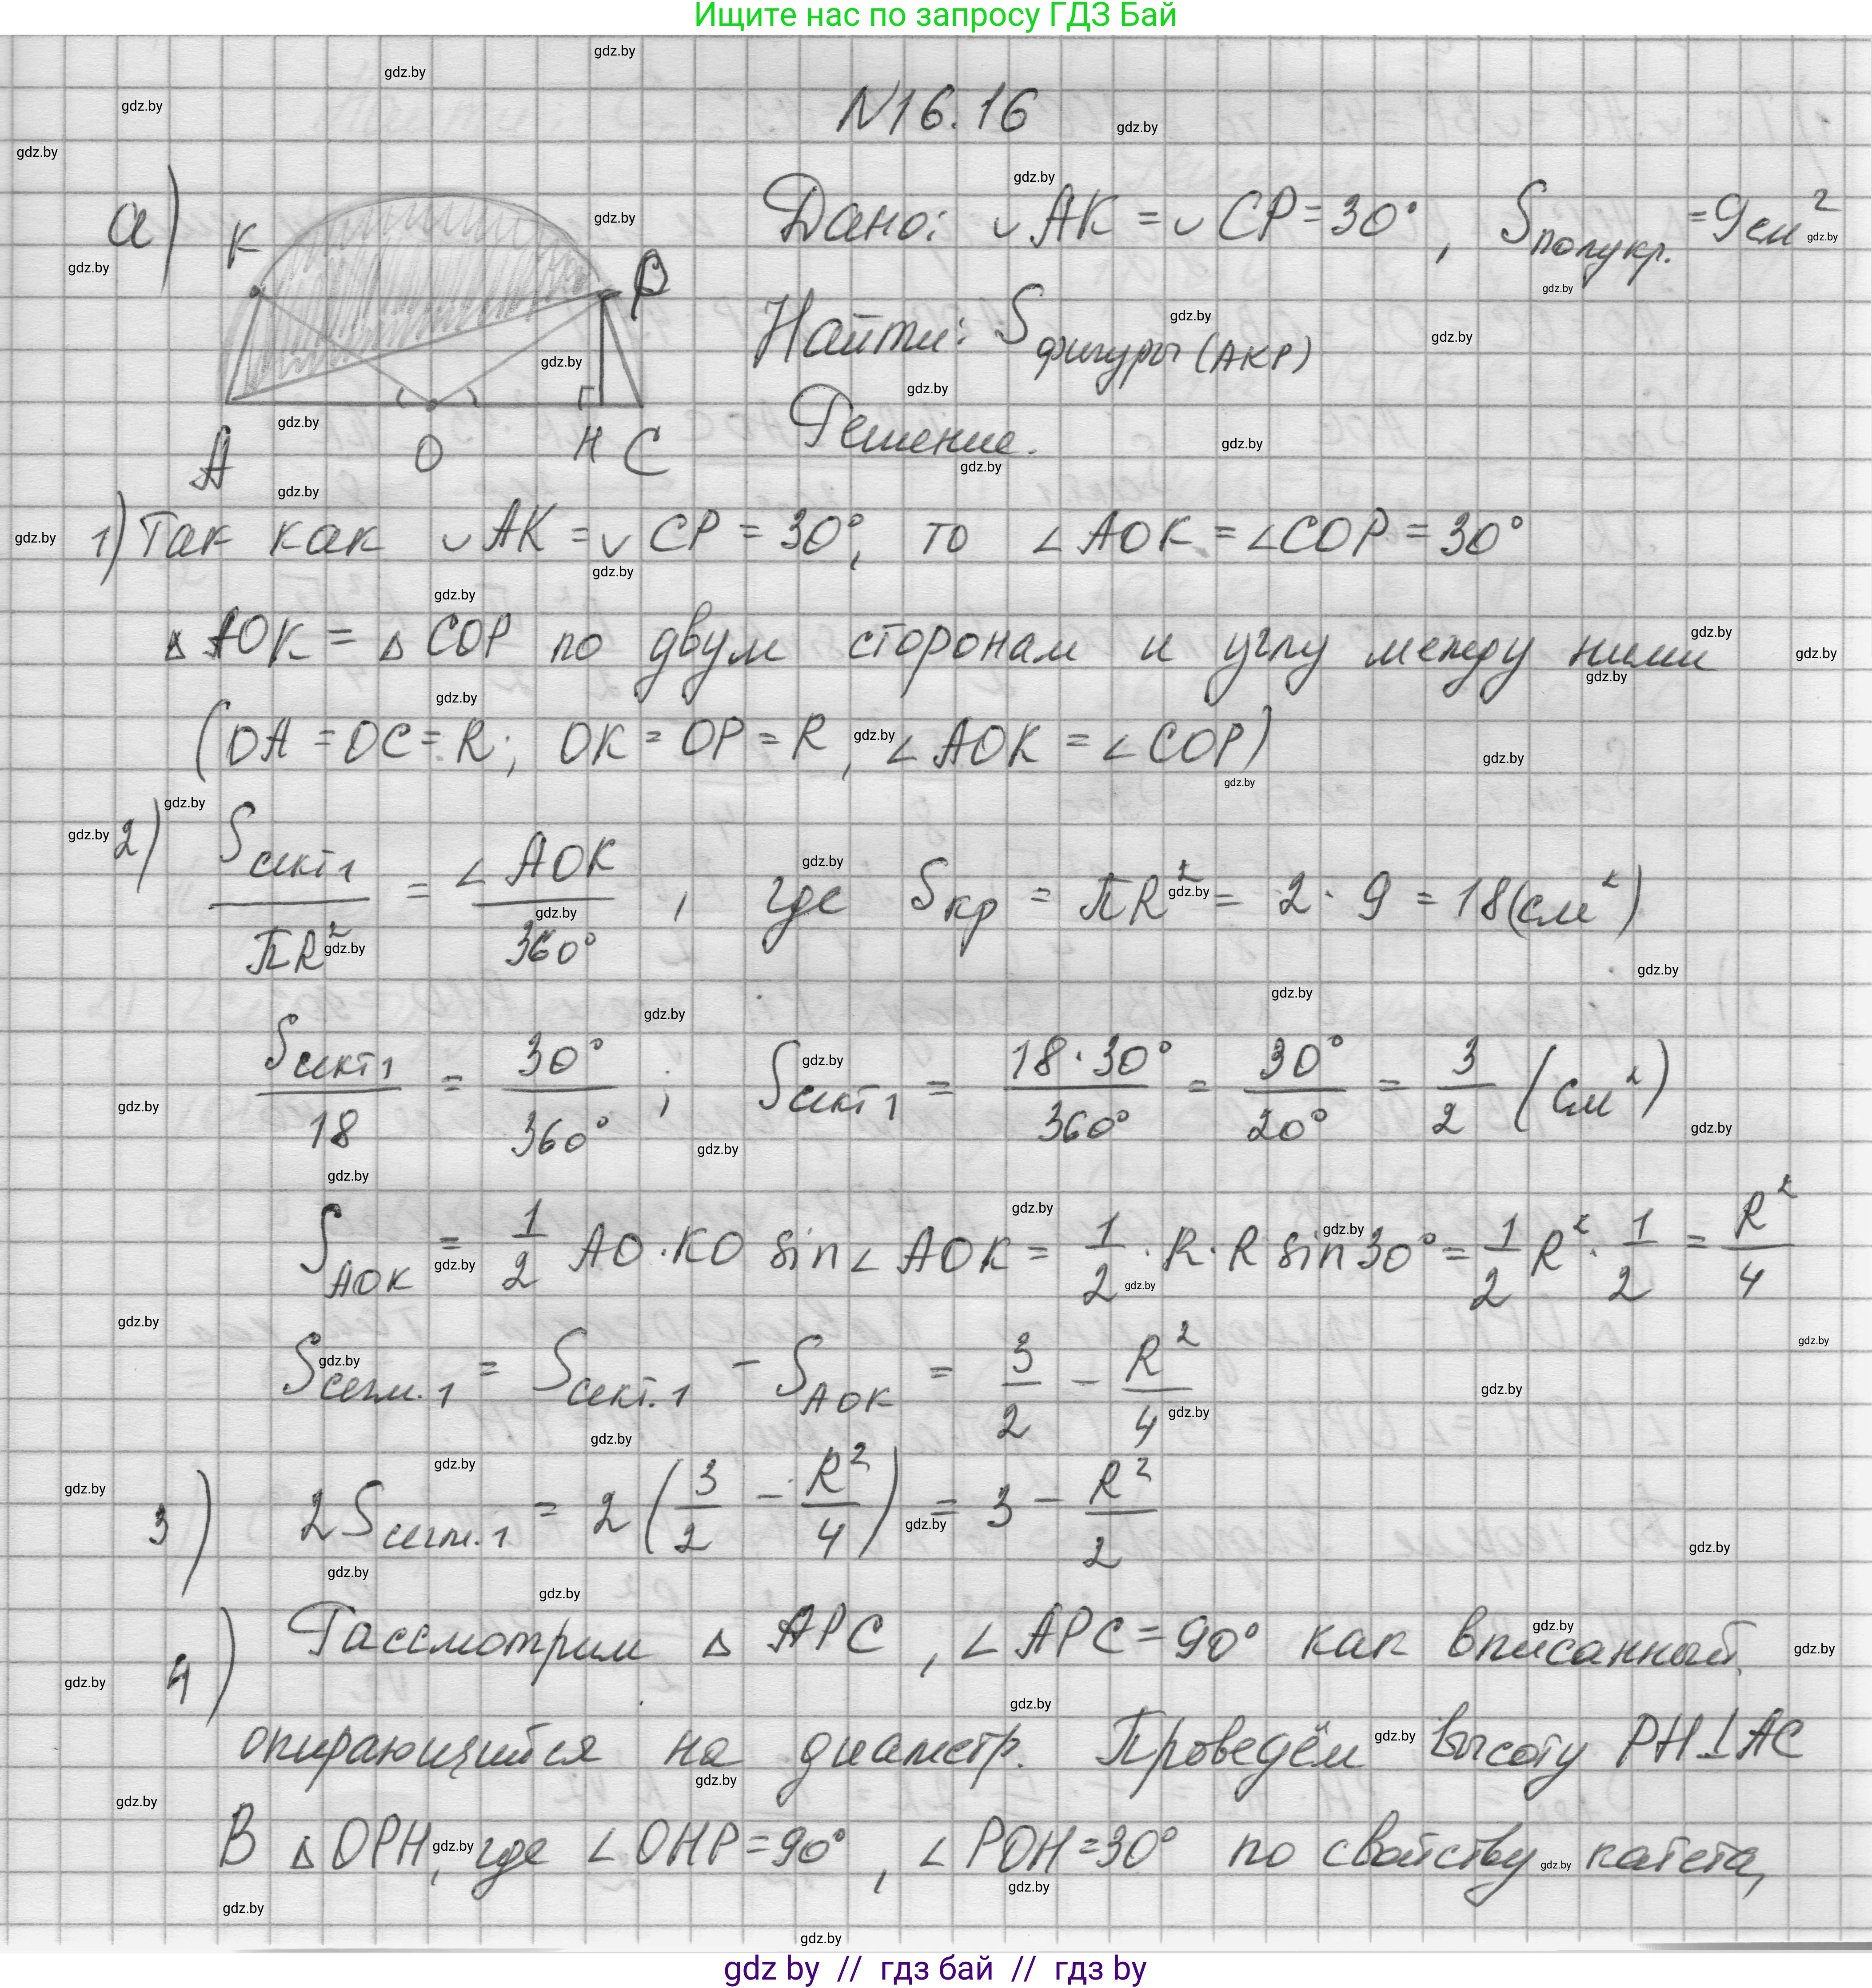 Ищите нас по запросу ГДЗ Бай
N16.16
а) Дано: ◡AK = ◡CP = 30°, Sполукр. = 9см²
K P A O H C
Найти: Sфигуры (AKP)
Решение.
1) Так как ◡AK = ◡CP = 30°, то ∠AOK = ∠COP = 30°
△AOK = △COP по двум сторонам и углу между ними
(OA = OC = R; OK = OP = R, ∠AOK = ∠COP)
2) Sсект1/πR² = ∠AOK/360°, где Sкр = πR² = 2 · 9 = 18(см²)
Sсект1/18 = 30°/360°; Sсект1 = 18·30°/360° = 30°/20° = 3/2 (см²)
S AOK = 1/2 AO·KO sin∠AOK = 1/2 · R·R sin30° = 1/2 R² · 1/2 = R²/4
Sсегм.1 = Sсект.1 − S AOK = 3/2 − R²/4
3) 2Sсегм.1 = 2(3/2 − R²/4) = 3 − R²/2
4) Рассмотрим △APC, ∠APC = 90° как вписанный,
опирающийся на диаметр. Проведём высоту PH⊥AC
В △OPH, где ∠OHP = 90°, ∠POH = 30° по свойству катета,
gdz by // гдз бай // гдз by
gdz.by